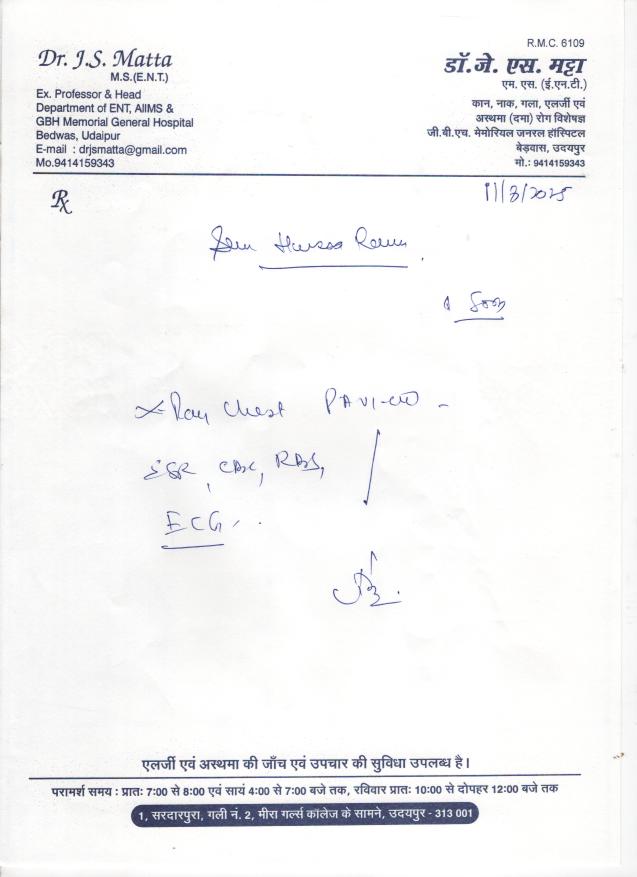 R.M.C. 6109
Dr. J.S. Matta
M.S.(E.N.T.)
Ex. Professor & Head
Department of ENT, AIIMS &
GBH Memorial General Hospital
Bedwas, Udaipur
E-mail : drjsmatta@gmail.com
Mo.9414159343
डॉ.जे. एस. मट्टा
एम. एस. (ई.एन.टी.)
कान, नाक, गला, एलर्जी एवं
अस्थमा (दमा) रोग विशेषज्ञ
जी.बी.एच. मेमोरियल जनरल हॉस्पिटल
बेड़वास, उदयपुर
मो.: 9414159343
Rx
11/8/2025
X-Ray Chest PA View
ESR, CBC, RBS,
ECG
एलर्जी एवं अस्थमा की जाँच एवं उपचार की सुविधा उपलब्ध है।
परामर्श समय : प्रातः 7:00 से 8:00 एवं सायं 4:00 से 7:00 बजे तक, रविवार प्रातः 10:00 से दोपहर 12:00 बजे तक
1, सरदारपुरा, गली नं. 2, मीरा गर्ल्स कॉलेज के सामने, उदयपुर - 313 001